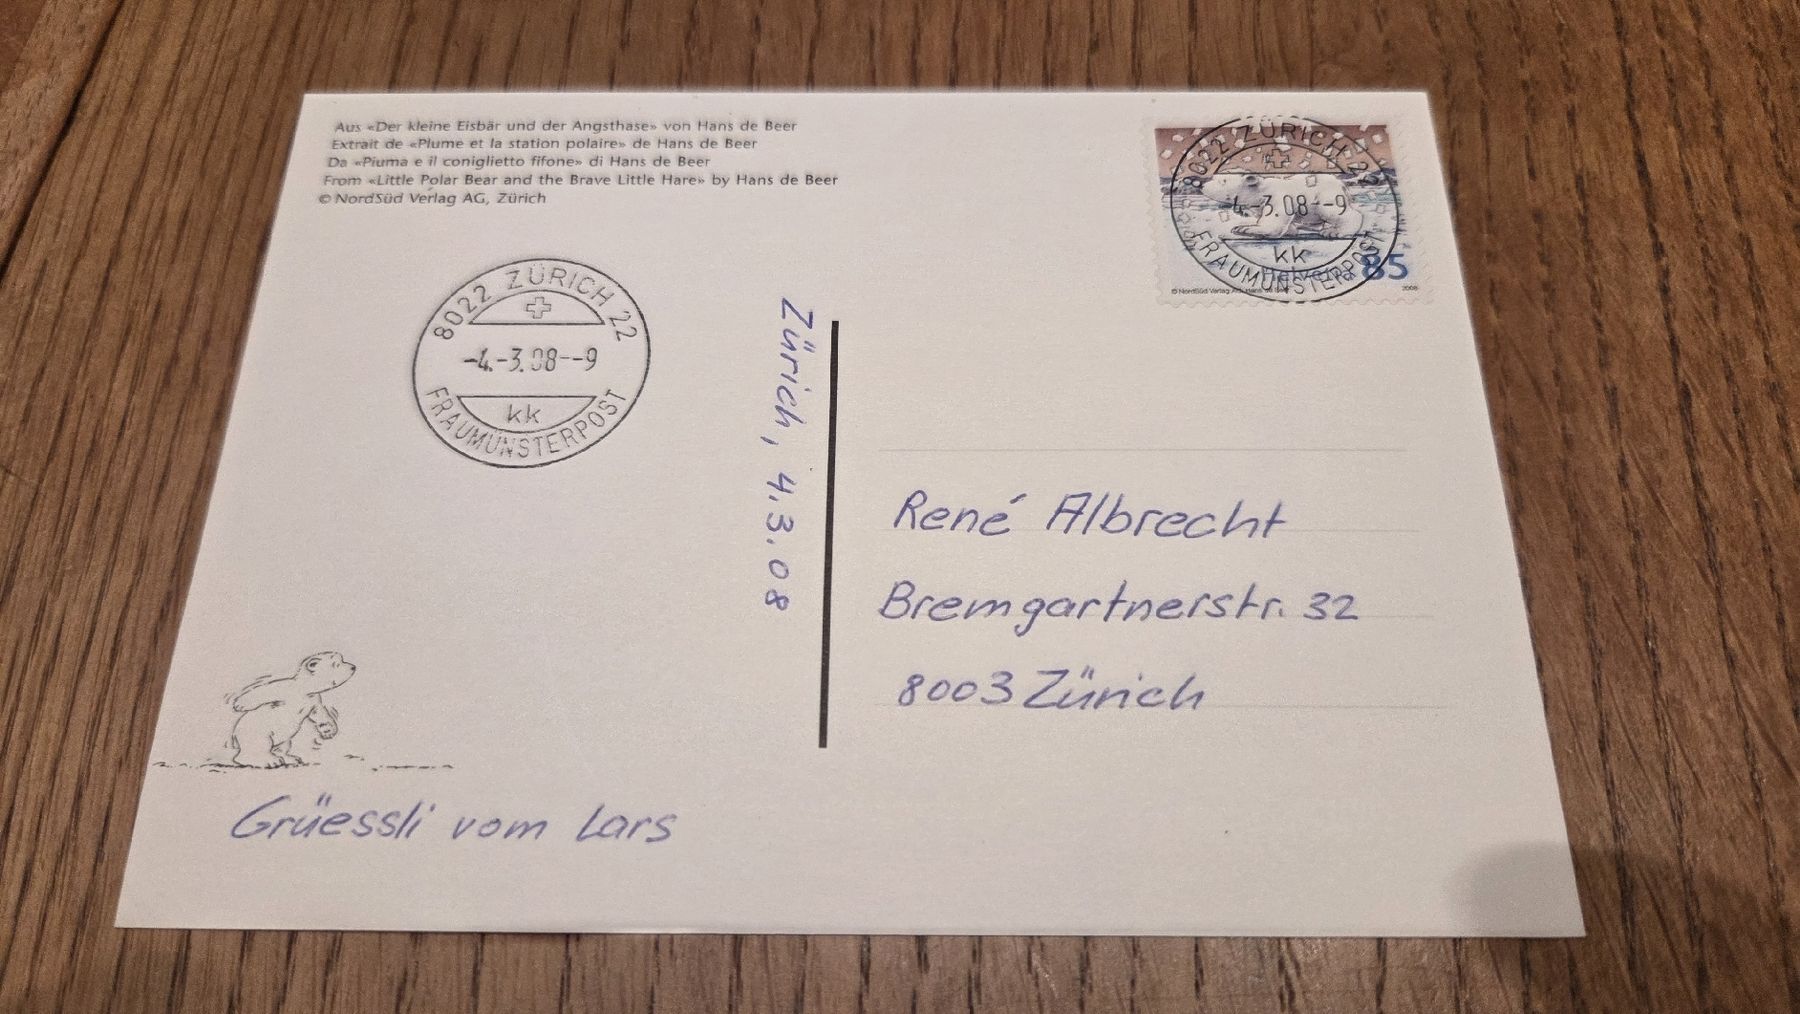 Aus «Der kleine Eisbär und der Angsthase» von Hans de Beer
Extrait de «Plume et la station polaire» de Hans de Beer
Da «Piuma e il coniglietto fifone» di Hans de Beer
From «Little Polar Bear and the Brave Little Hare» by Hans de Beer
© NordSüd Verlag AG, Zürich
8022 ZÜRICH 22
-4.-3.08--9
kk
FRAUMÜNSTERPOST
8022 ZÜRICH 22
-4.-3.08--9
kk
FRAUMÜNSTERPOST
Helvetia 85
© NordSüd Verlag AG, Hans de Beer 2008
Zürich, 4.3.08
René Albrecht
Bremgartnerstr. 32
8003 Zürich
Grüessli vom Lars